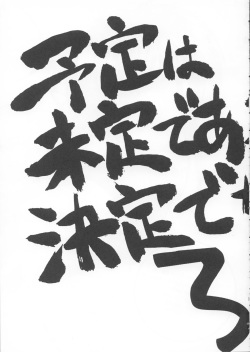 予定は
未定であ
決定で
ろ